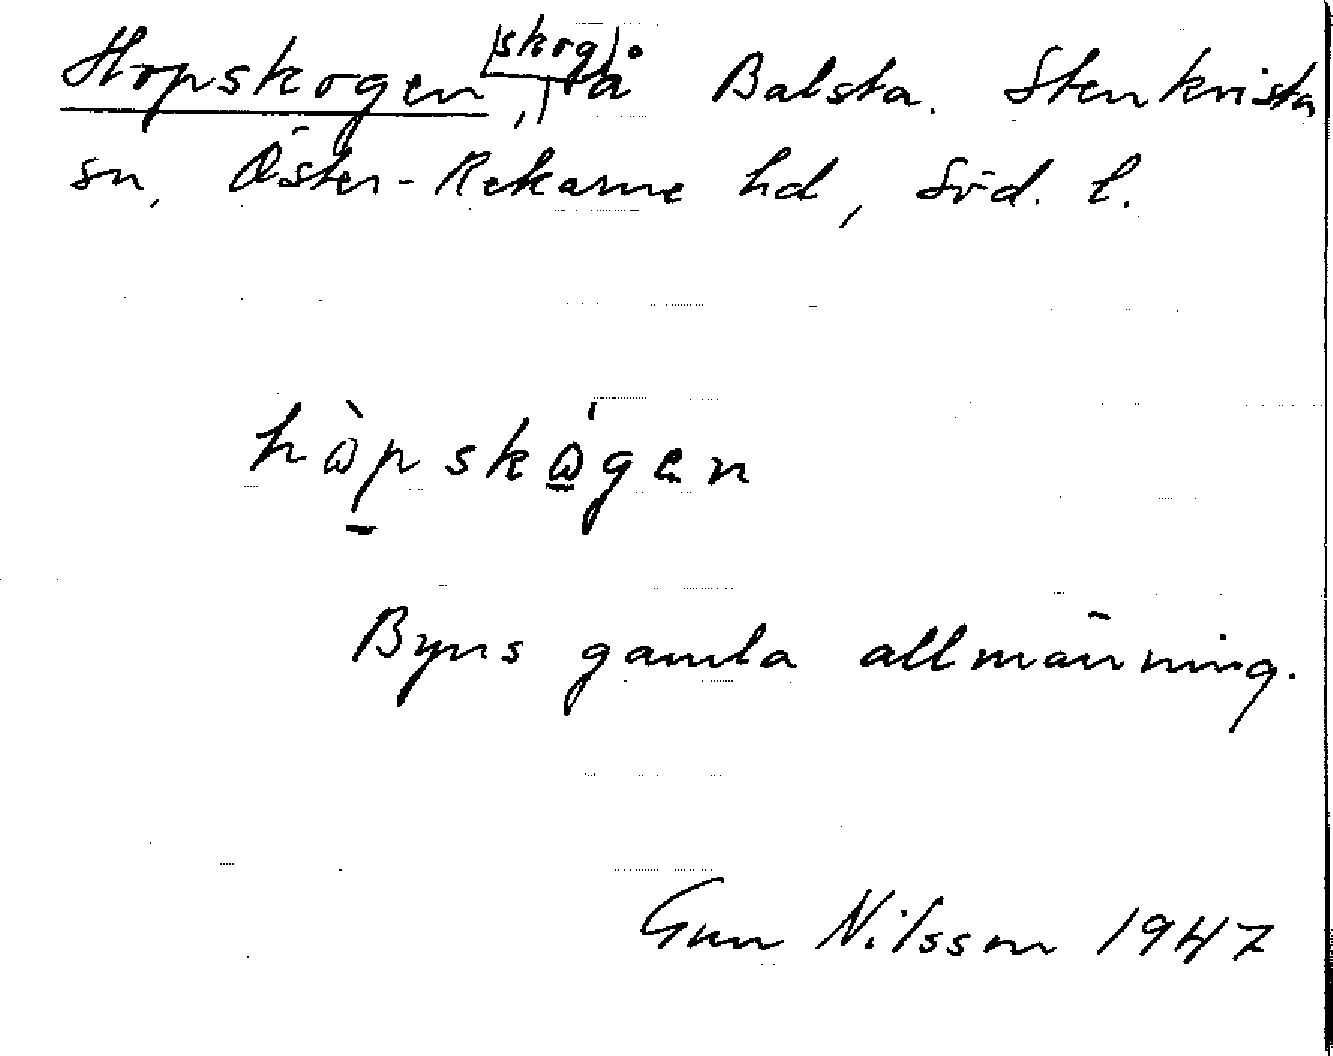 Hopskogen, (skog) på Balsta. Stenkvista
sn, Öster-Rekarne hd, Söd. l.
hɷ̀pskɷ́gen
Byns gamla allmänning.
Gun Nilsson 1947